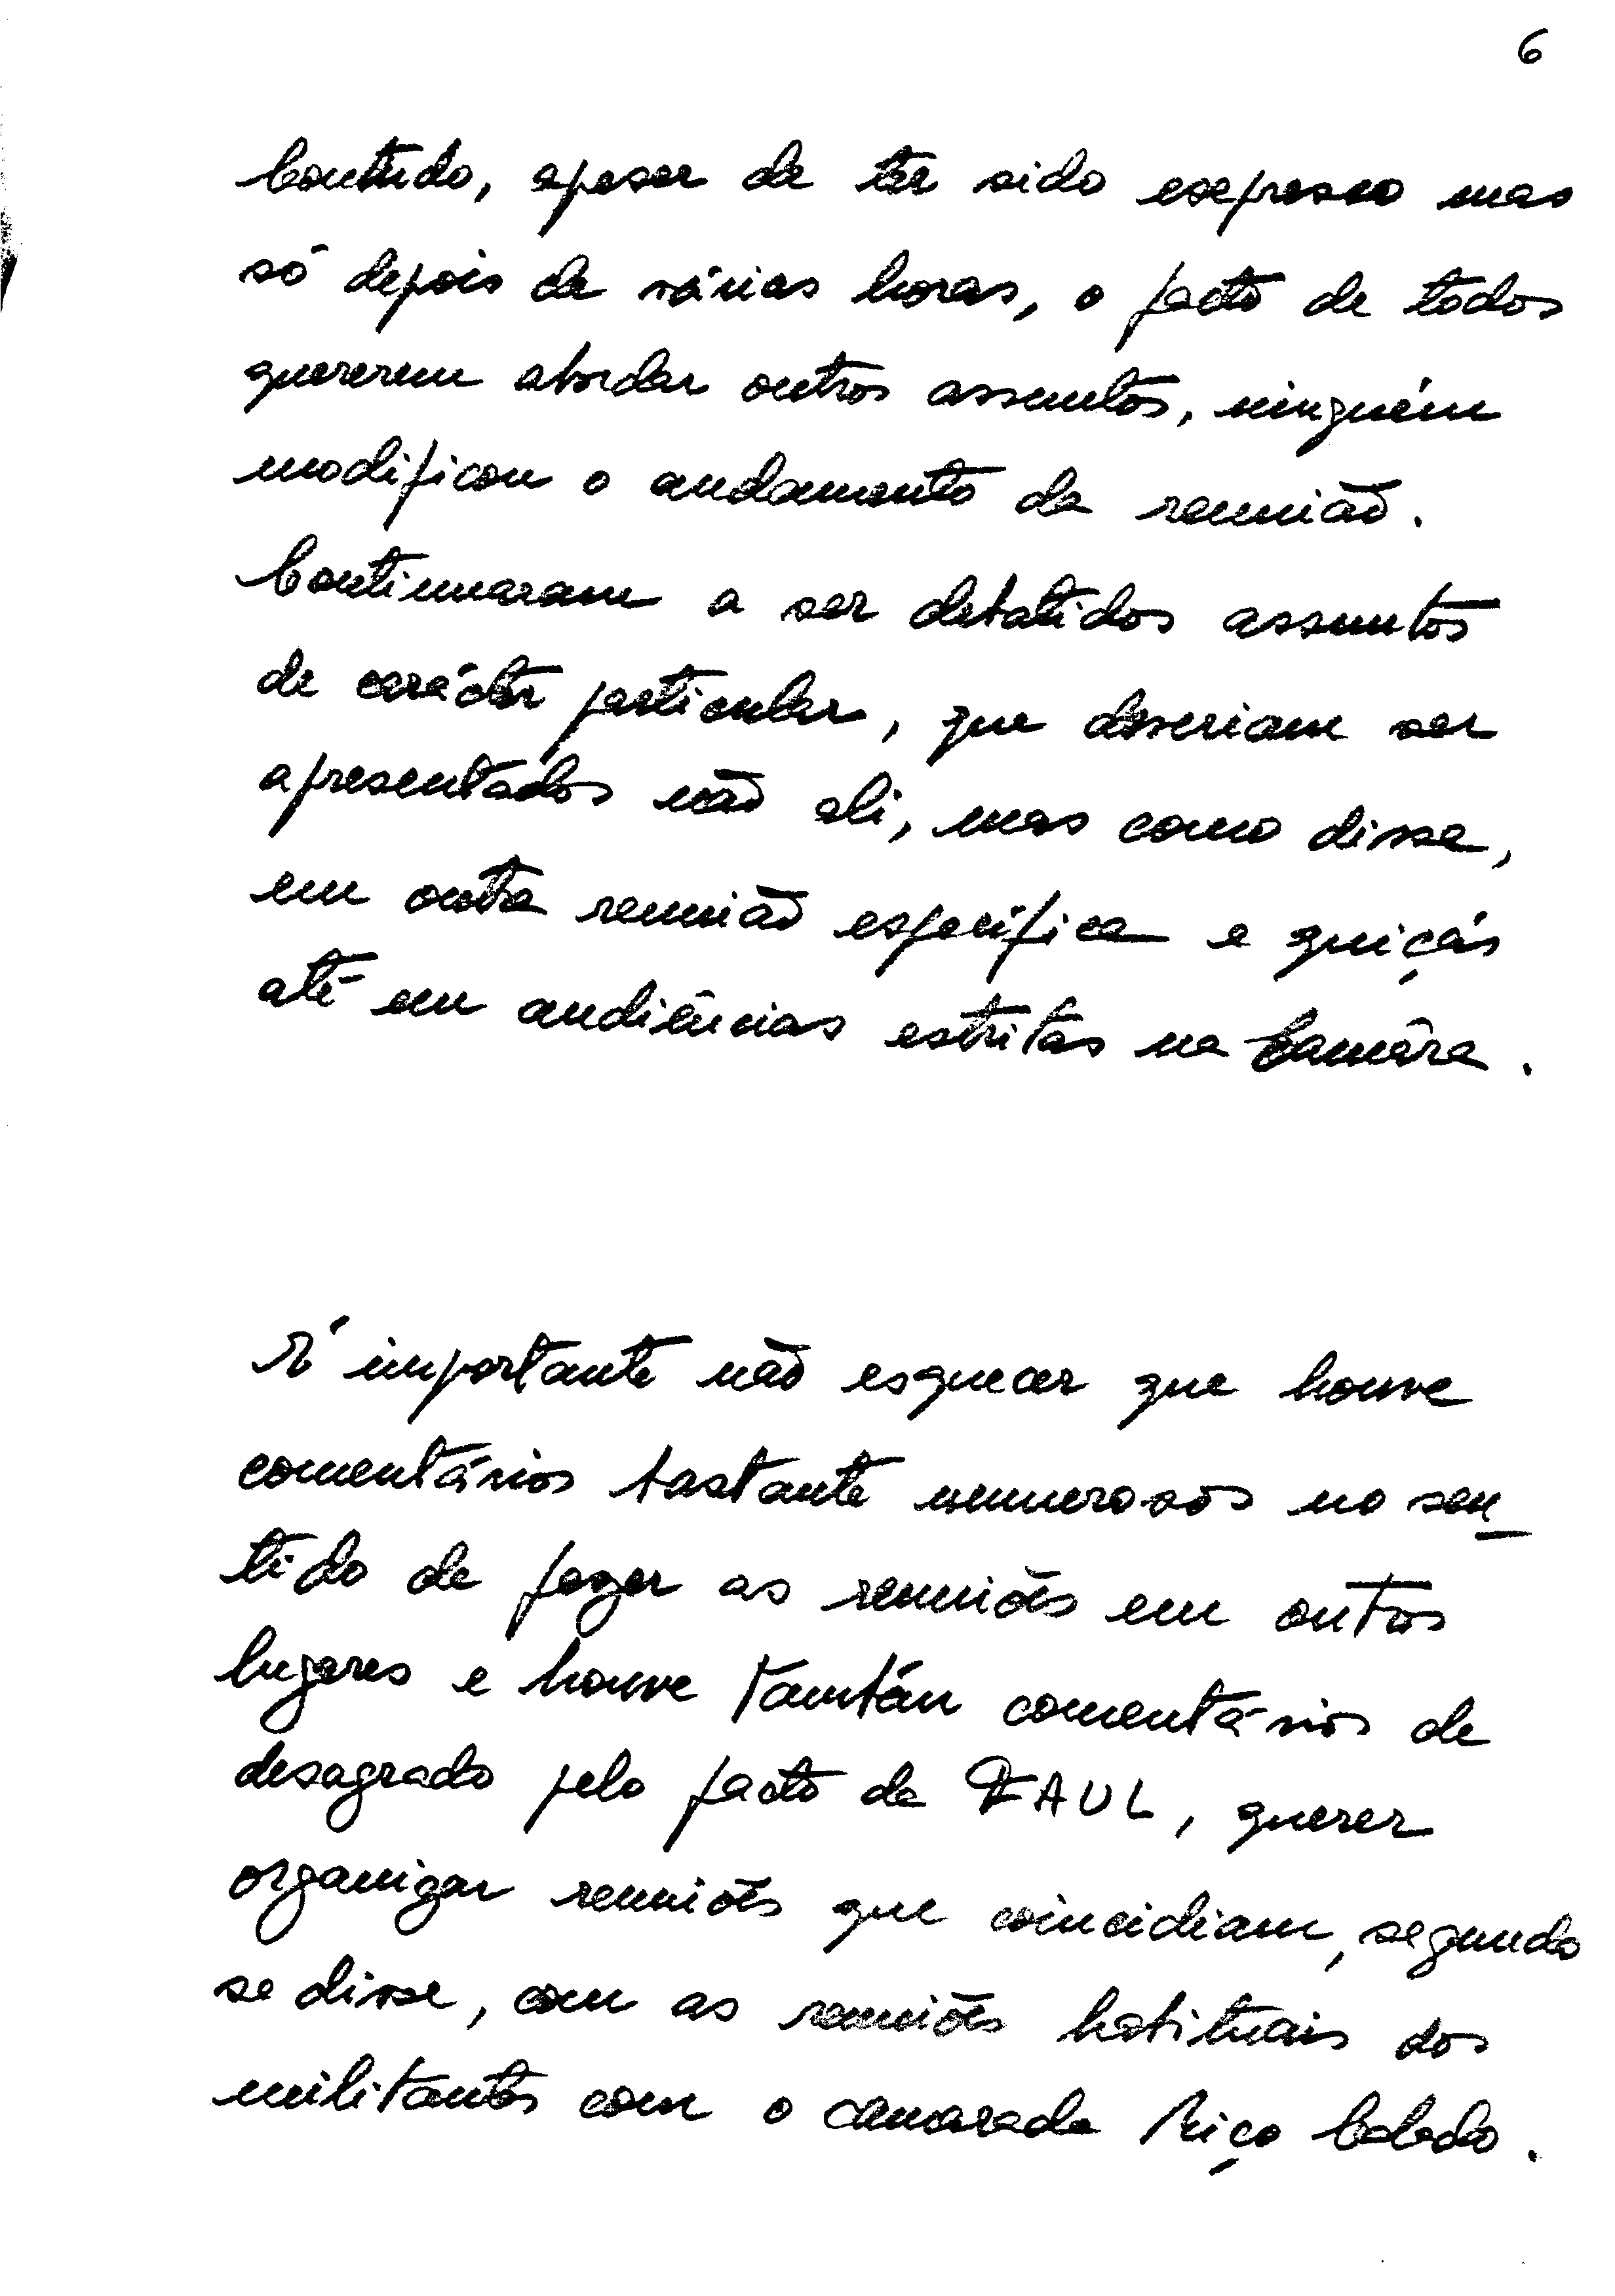 6
Contudo, apesar de ter sido expresso mas
só depois de várias horas, o facto de todos
quererem abordar outros assuntos, ninguém
modificou o andamento da reunião.
Continuaram a ser debatidos assuntos
de carácter particular, que deveriam ser
apresentados não ali, mas como disse,
em outra reunião específica e quiçás
até em audiências estritas na Camâra.
É importante não esquecer que houve
comentários bastante numerosos no sen_
tido de fazer as reuniões em outros
lugares e houve também comentários de
desagrado pelo facto da FAUL, querer
organizar reuniões que coincidiam, segundo
se disse, com as reuniões habituais dos
militantes com o camarada Riço Calado.